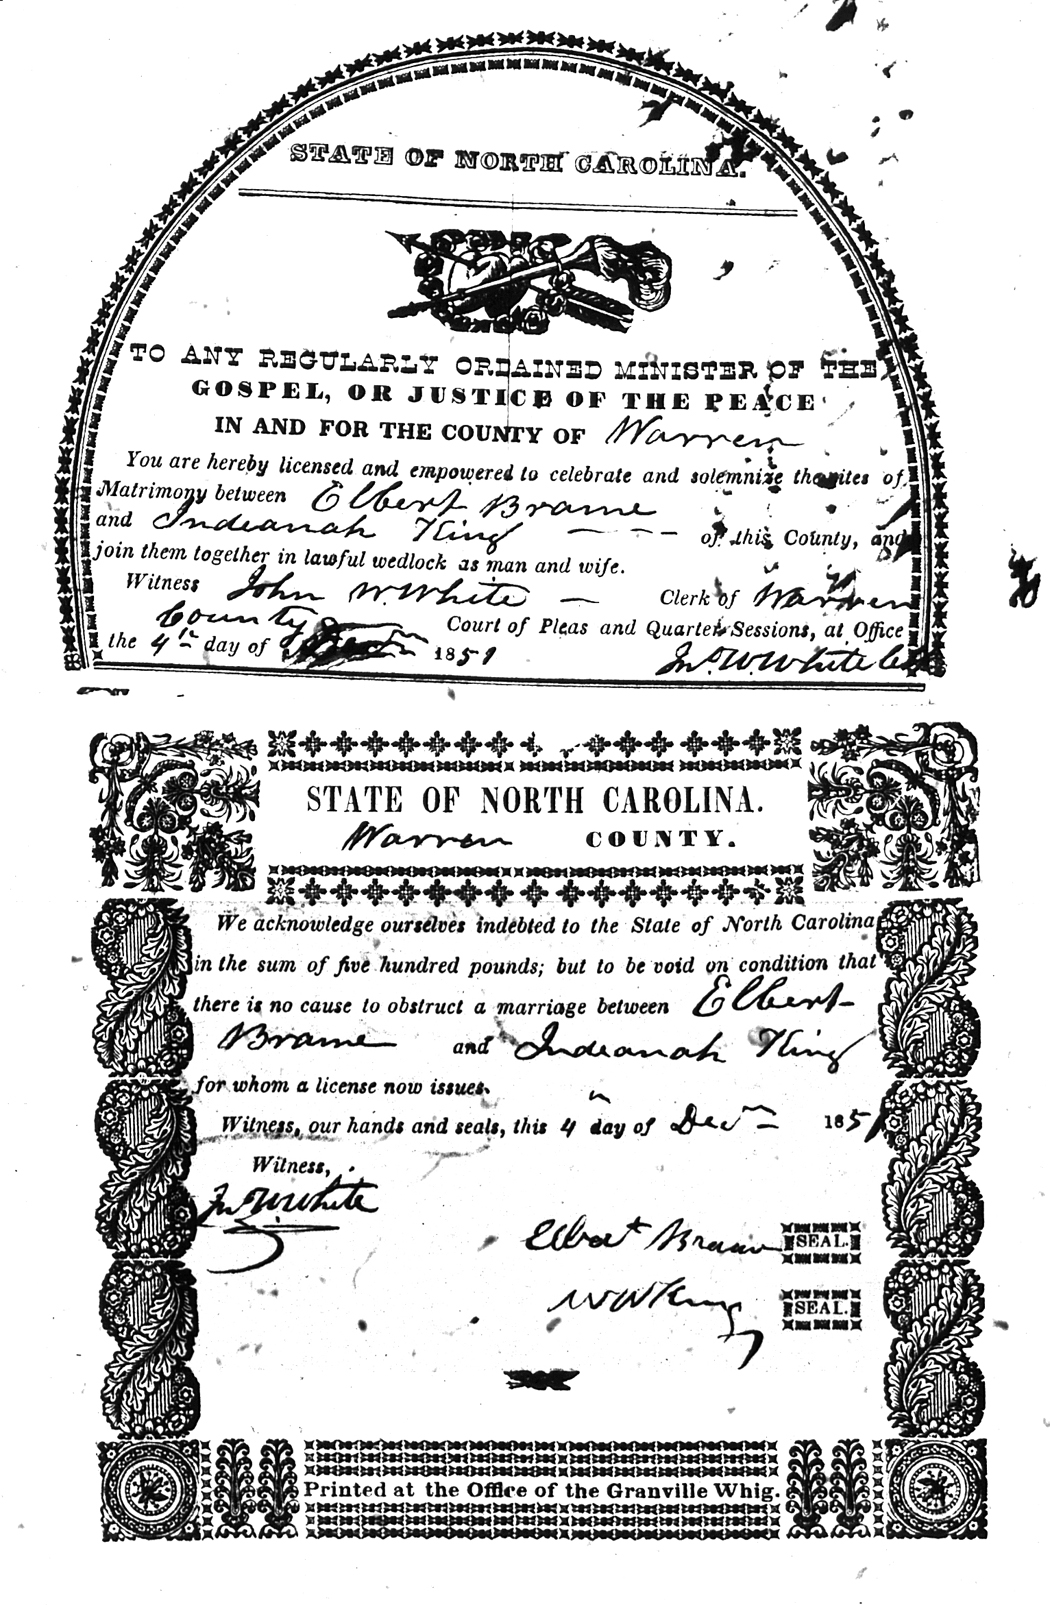 STATE OF NORTH CAROLINA.
TO ANY REGULARLY ORDAINED MINISTER OF THE
GOSPEL, OR JUSTICE OF THE PEACE
IN AND FOR THE COUNTY OF Warren
You are hereby licensed and empowered to celebrate and solemnize the rites of
Matrimony between Elbert Brame
and Indeanah King — - - - of this County, and
join them together in lawful wedlock as man and wife.
Witness John W. White — Clerk of Warren
County Court of Pleas and Quarter Sessions, at Office
the 4th day of 1851 Jno. W. White
STATE OF NORTH CAROLINA.
Warren COUNTY.
We acknowledge ourselves indebted to the State of North Carolina
in the sum of five hundred pounds; but to be void on condition that
there is no cause to obstruct a marriage between Elbert
Brame and Indeanah King
for whom a license now issues.
Witness, our hands and seals, this 4 day of Decm 1851
Witness,
Jno. W. White
Elbert Brame SEAL.
W W King SEAL.
Printed at the Office of the Granville Whig.